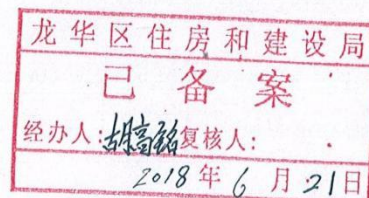 龙华区住房和建设局
已备案
经办人:胡高铭复核人:
2018年6月21日